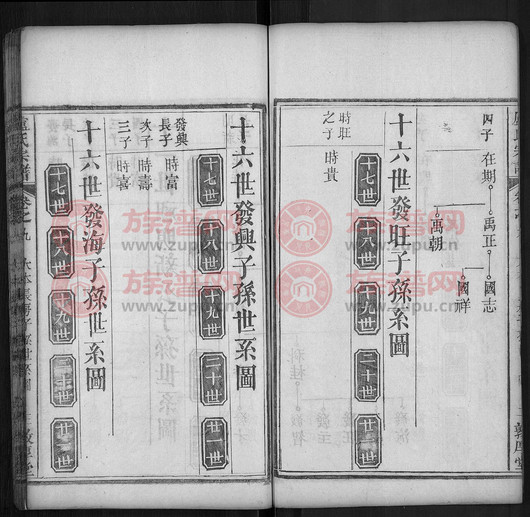 四子 在期 禹正 國志
禹朝 國祥
十六世發旺子孫世系圖
十七世 十八世 十九世 二十世 廿一世
時旺之子 時貴
十六世發興子孫世系圖
十七世 十八世 十九世 二十世 廿一世
發興長子 時富
次子 時壽
三子 時喜
十六世發海子孫世系圖
十七世 十八世 十九世 二十世 廿一世
氏宗譜
敦厚堂
族譜网
www.zupu.cn